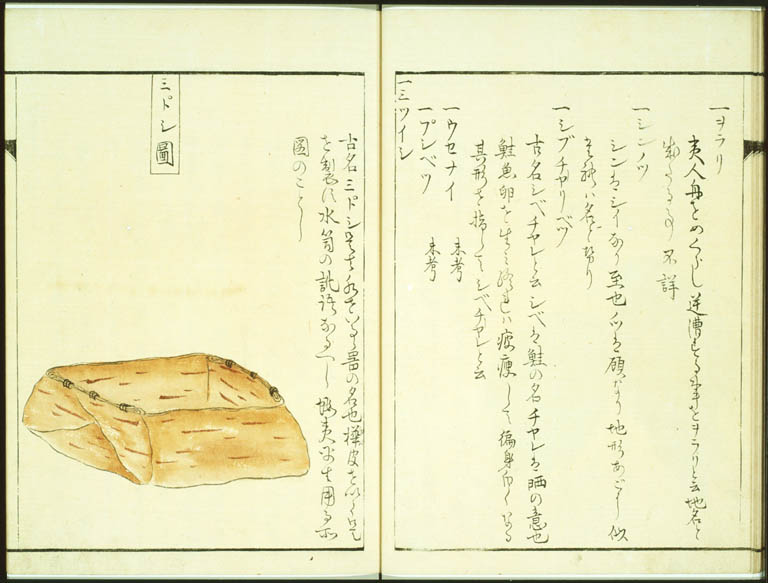 一ヲラリ
夷人舟をめくらし逆漕する事をヲラリと云地名と
不詳
一シンノツ
シンはシイなり至也ノツは頤なり地形あごに似
名と
一シブチヤリベツ
古名シベチヤレと云シベは鮭の名チヤレは晒の意也
鮭魚卵を生み終れは疲痩して徧身白くなる
其形を指してシベチヤレと云
一ウセナイ 未考
一プレベツ 未考
一ミツイシ
古名ミトシ水を器の名也樺皮を以て
を製す水筒の訛語なるへし蝦夷用る
圖のことし
ミトシ圖